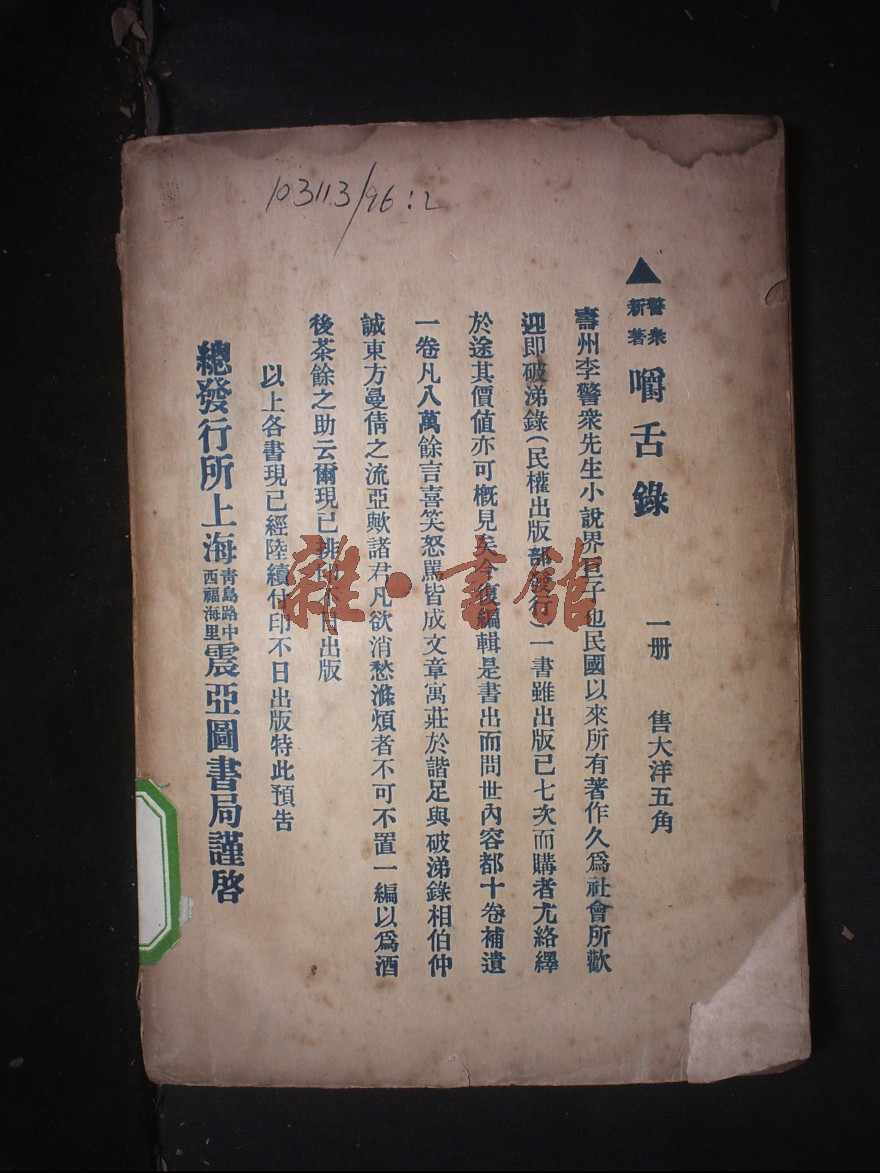 103113/96:2
▲警衆新著 嚼舌錄 一册 售大洋五角
壽州李警衆先生小說界巨子也民國以來所有著作久爲社會所歡
迎即破涕錄(民權出版部發行)一書雖出版已七次而購者尤絡繹
於途其價值亦可概見矣今復編輯是書出而問世內容都十卷補遺
一卷凡八萬餘言喜笑怒罵皆成文章寓莊於諧足與破涕錄相伯仲
誠東方曼倩之流亞歟諸君凡欲消愁滌煩者不可不置一編以爲酒
後茶餘之助云爾現已排印不日出版
以上各書現已經陸續付印不日出版特此預告
總發行所上海青島路中西福海里震亞圖書局謹啓
雜·書館